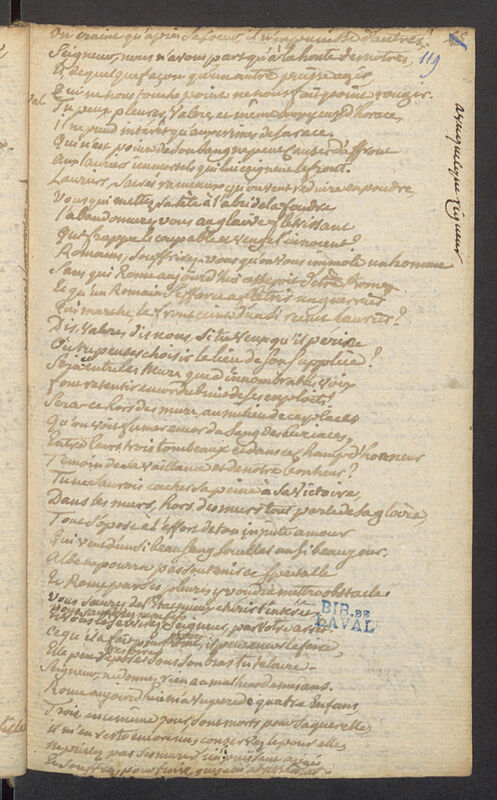 On craint qu'après sa soeur, il n'en punisse d'autres!
119
Seigneur, nous n'avons part qu'à la honte des nôtres,
Et de quelque façon qu'un autre puisse agir,
Qui ne nous touche point ne nous fait point rougir.
Tu peux pleurer, Valere, et même aux yeux d'horace,
Il ne prend interêt qu'aux crimes de sa race.
Qui n'est point de son sang ne peut causer d'affront
Aux lauriers immortels qui lui ceignent le front.
Lauriers, sacrés rameaux qu'on veut réduire en poudre
Vous qui mettez sa tête à l'abri de la foudre,
l'abandonnerez vous au glaive flétrissant
Qui frappe le coupable et venge l'innocent?
Romains, souffrirez vous qu'on vous immole un homme
Sans qui Rome aujourd'hui cesseroit d'être Rome,
Et qu'un Romain s'efforce a flétrir un guerrier
Qui marche le front ceint d'un si recent laurier?
Dis, Valere, dis nous, si tu veux qu'il perisse
Ou tu penses choisir le lieu de son supplice?
Sera entre les murs que d'innombrables voix
font retentir encor du bruit de ses exploits?
Sera-ce hors des murs, au milieu de ces places
Qu'on voit fumer encor du sang des Curiaces,
Entre leurs trois tombeaux et dans ce champ d'honneur
Temoin de sa vaillance et de notre bonheur?
Tu ne sçaurois cacher sa peine à sa victoire,
Dans les murs, hors des murs tout parle de sa gloire,
Tout s'opose a l'effort de ton injuste amour
Qui veut d'un si beau sang souiller un si beau jour.
Albe ne pourra pas soutenir ce spectacle
Et Rome par ses pleurs y voudra mettre obstacle
Vous
Seigneur, par votre arrêt
Ce qu'il a fait pour elle, il peut encor le faire
Elle peut
Seigneur, ne donnez rien au malheur de mes ans.
Rome aujourd'hui m'a vu pere de quatre Enfans
Trois en ce même jour sont morts pour sa querelle
il m'en reste encor un, conservez le pour elle
BIB. DE
LAVAL